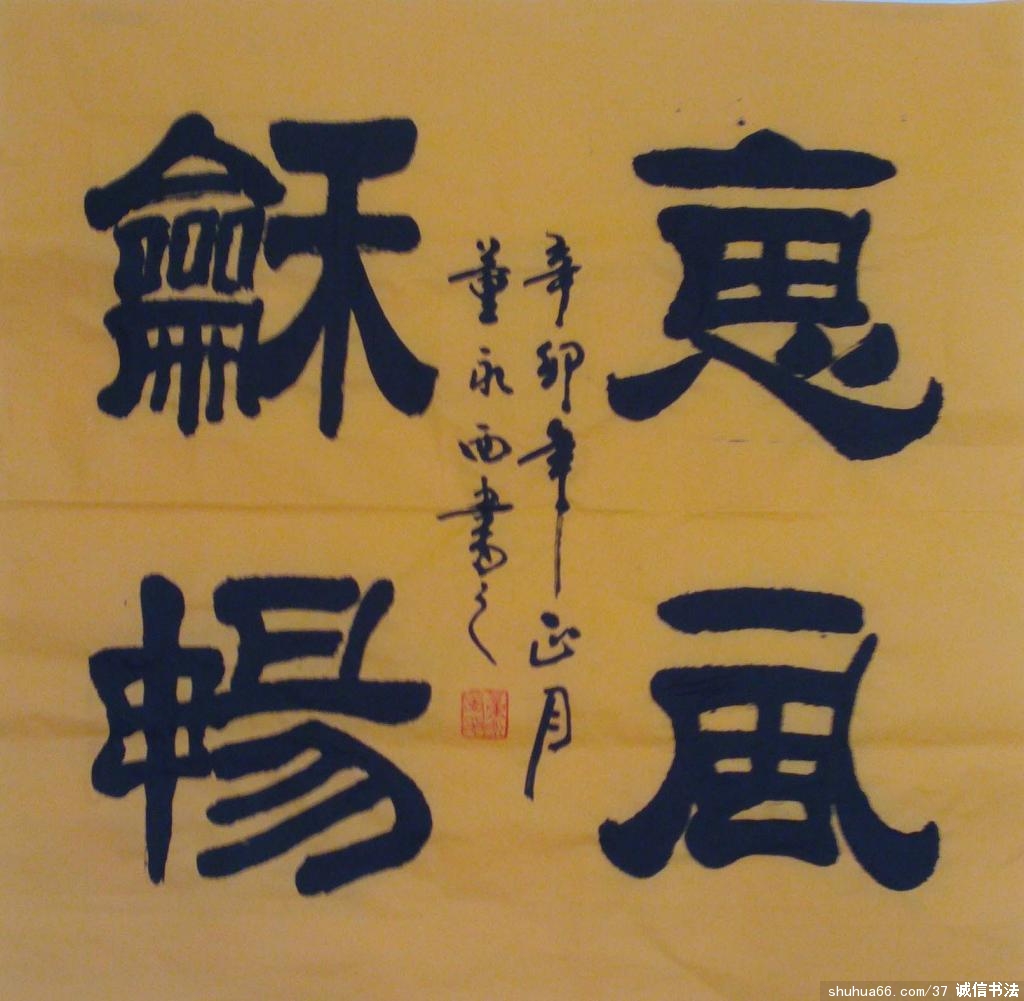 恵風
龢暢
辛卯年正月
董永西書之
shuhua66.com/37 诚信书法